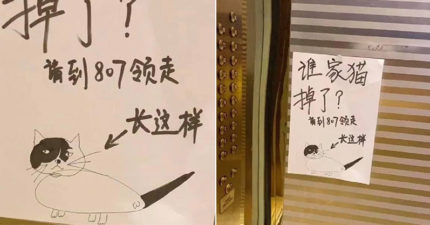 掉了？
请到807领走
长这样
谁家猫
掉了？
请到807领走
长这样